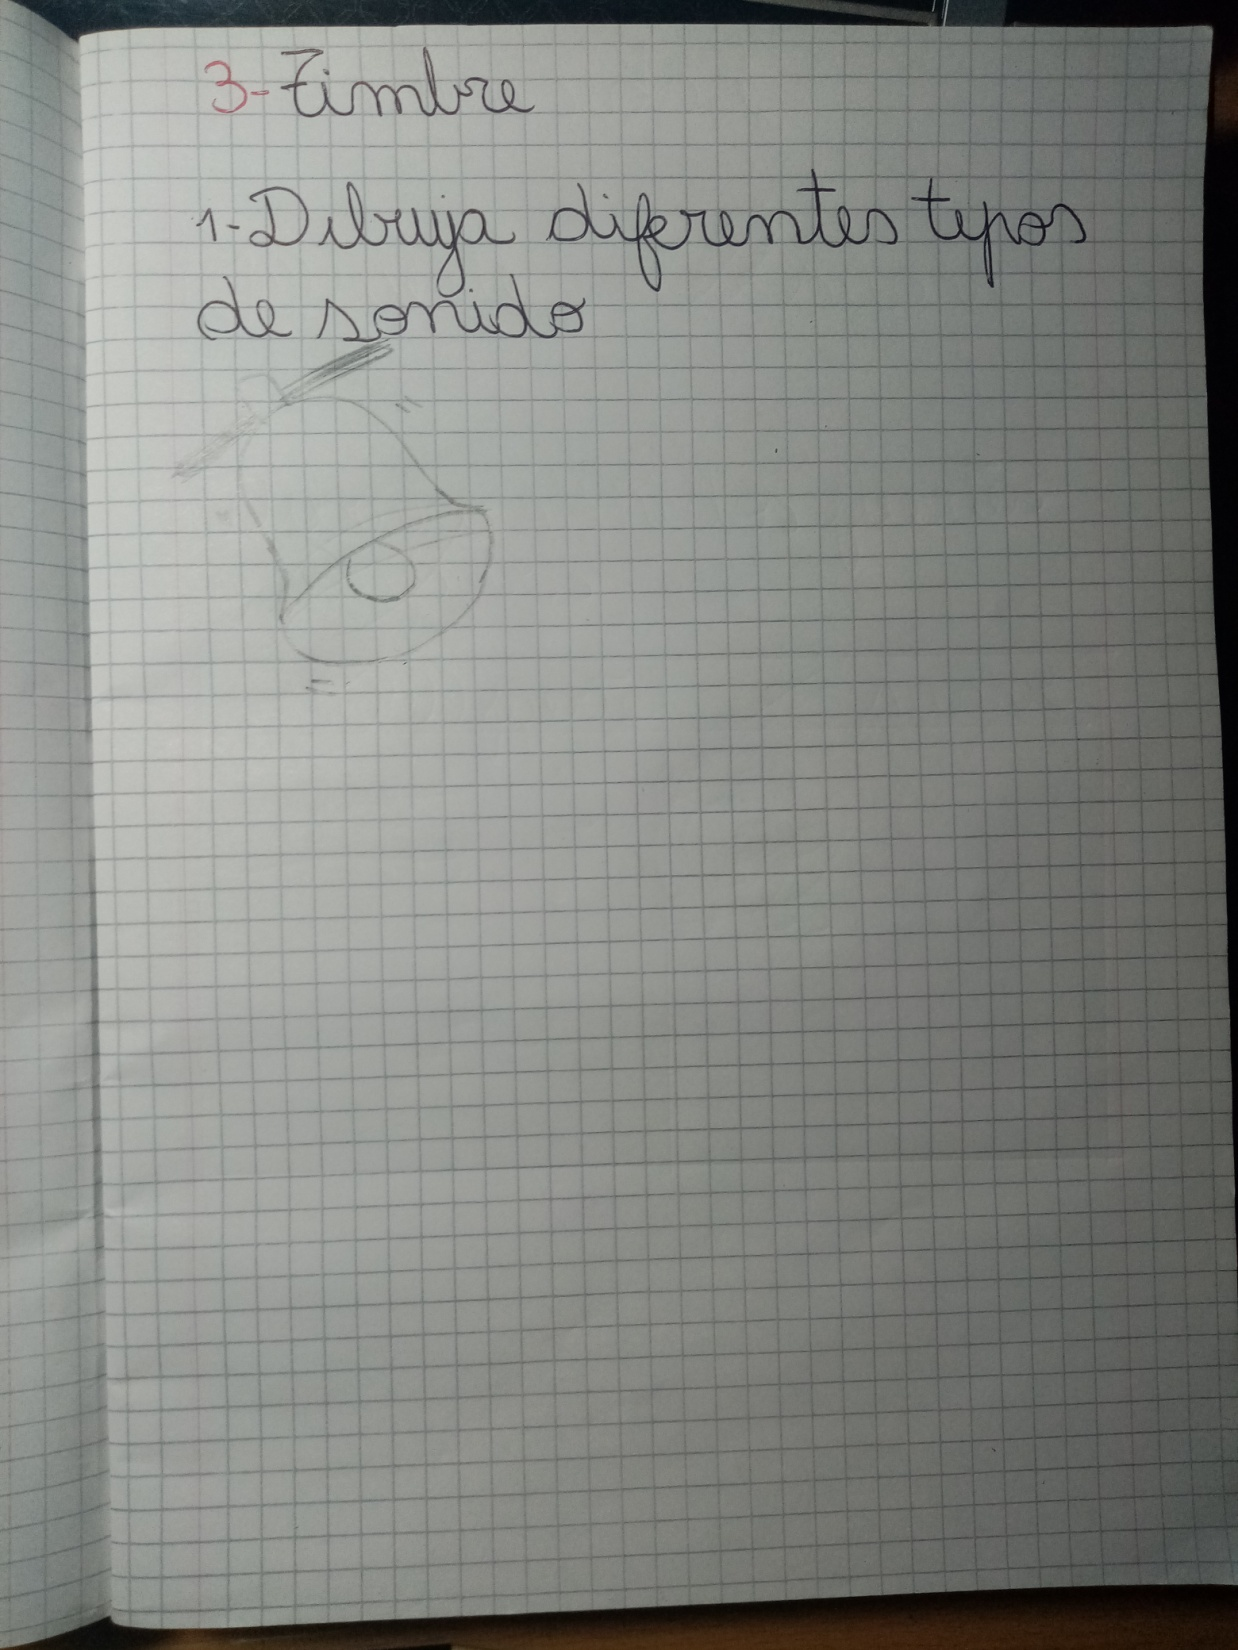 3-Timbre
1-Dibuja diferentes tipos
de sonido